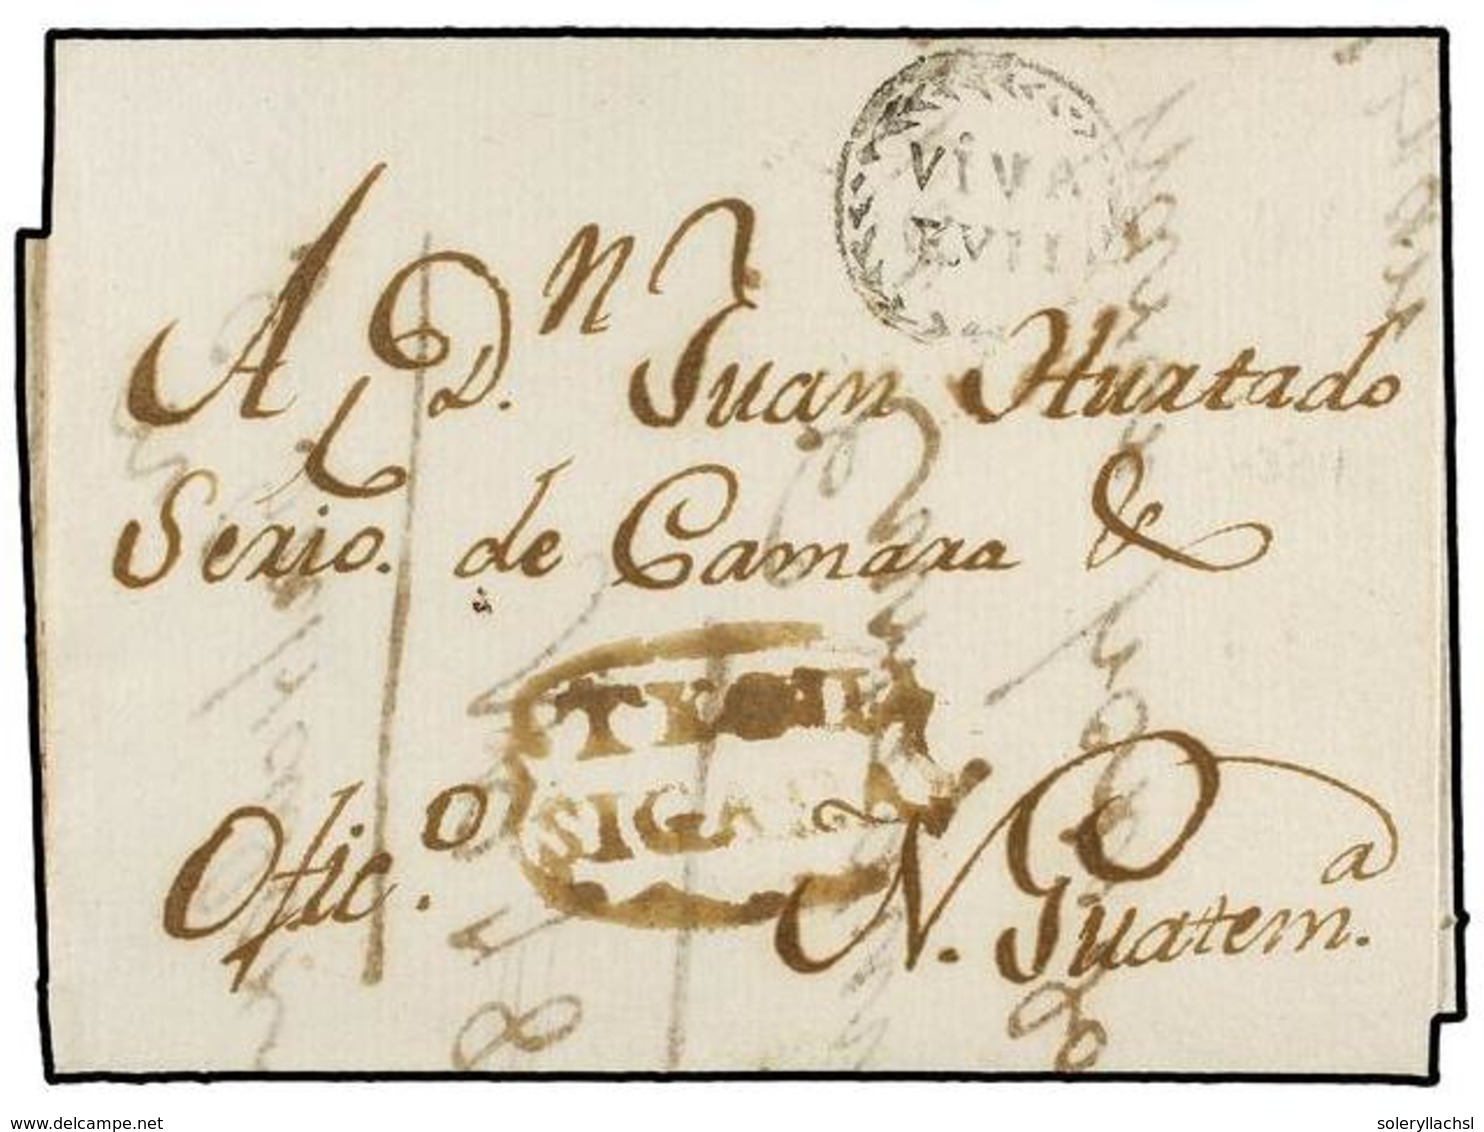 VIVA
F.VII
A D.n Juan Hurtado
Serio. de Camara &
TEGUIA
SIGALPA
Ofic.o
N. Guatem.a
www.delcampe.net
soleryllachsl